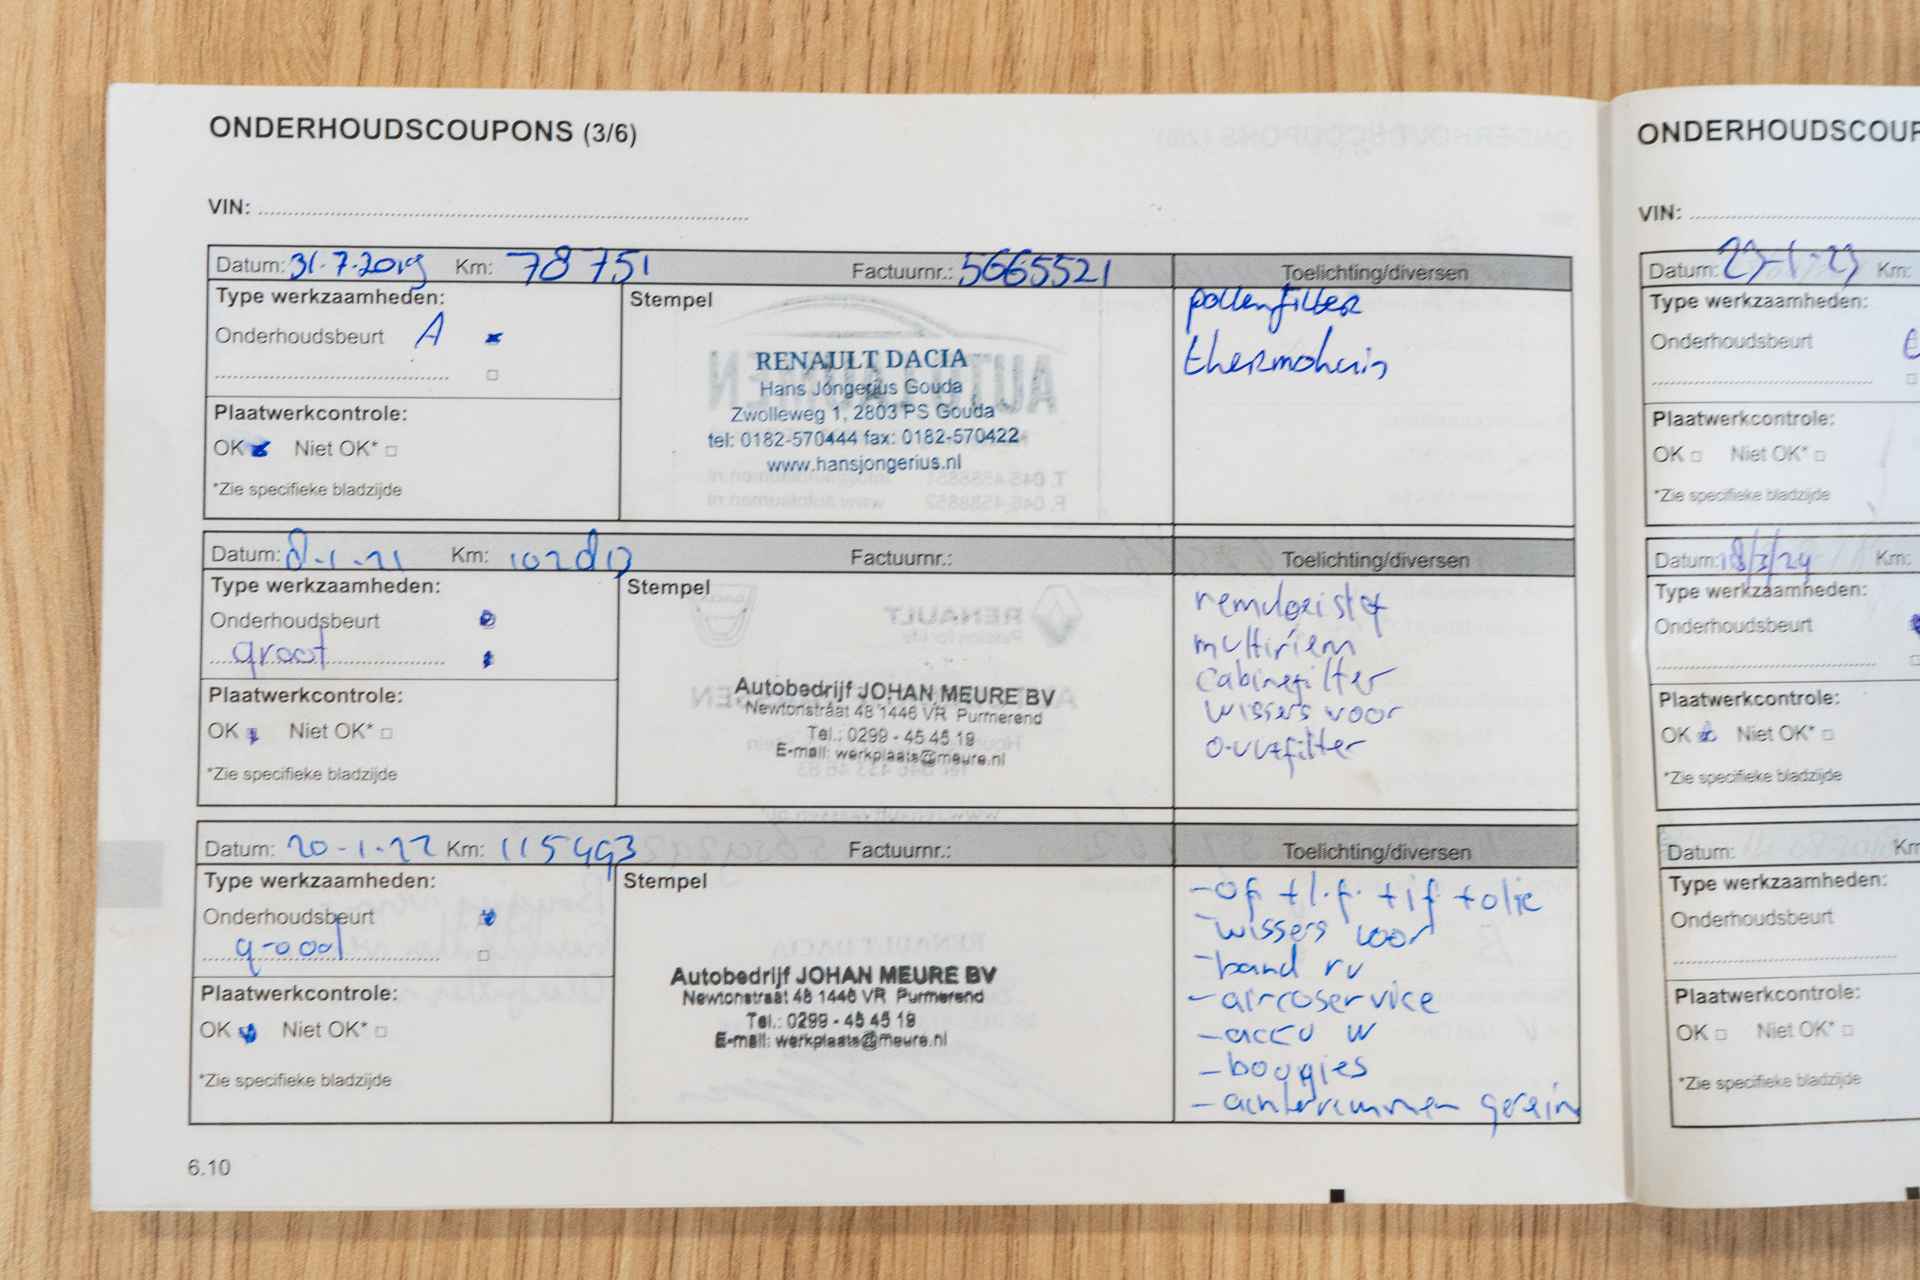 ONDERHOUDSCOUPONS (3/6)
VIN:
Datum: 31-7-2019 Km: 78751 Factuurnr.: 5665521 Toelichting/diversen
Type werkzaamheden:
Onderhoudsbeurt A
Plaatwerkcontrole:
OK Niet OK*
*Zie specifieke bladzijde
Stempel
RENAULT DACIA
Hans Jongerius Gouda
Zwolleweg 1, 2803 PS Gouda
tel: 0182-570444 fax: 0182-570422
www.hansjongerius.nl
pollenfilter
thermohuis
Datum: 8-1-21 Km: Factuurnr.: Toelichting/diversen
Type werkzaamheden:
Onderhoudsbeurt
groot
Plaatwerkcontrole:
OK Niet OK*
*Zie specifieke bladzijde
Stempel
Autobedrijf JOHAN MEURE BV
Newtonstraat 48 1446 VR Purmerend
Tel.: 0299 - 45 45 19
E-mail: werkplaats@meure.nl
remvloeistof
multiriem
cabinefilter
wissers voor
Datum: 20-1-22 Km: 115493 Factuurnr.: Toelichting/diversen
Type werkzaamheden:
Onderhoudsbeurt
Plaatwerkcontrole:
OK Niet OK*
*Zie specifieke bladzijde
Stempel
Autobedrijf JOHAN MEURE BV
Newtonstraat 48 1446 VR Purmerend
Tel.: 0299 - 45 45 19
E-mail: werkplaats@meure.nl
- of + l.f. + if + olie
- wissers voor
- band rv
- aircoservice
- accu w
- bougies
- achterremmen gerein
6.10
ONDERHOUDSCOUP
VIN:
Datum: Km:
Type werkzaamheden:
Onderhoudsbeurt
Plaatwerkcontrole:
OK Niet OK*
*Zie specifieke bladzijde
Datum: 18/3/24 Km:
Type werkzaamheden:
Onderhoudsbeurt
Plaatwerkcontrole:
OK Niet OK*
*Zie specifieke bladzijde
Datum: Km
Type werkzaamheden:
Onderhoudsbeurt
Plaatwerkcontrole:
OK Niet OK*
*Zie specifieke bladzijde